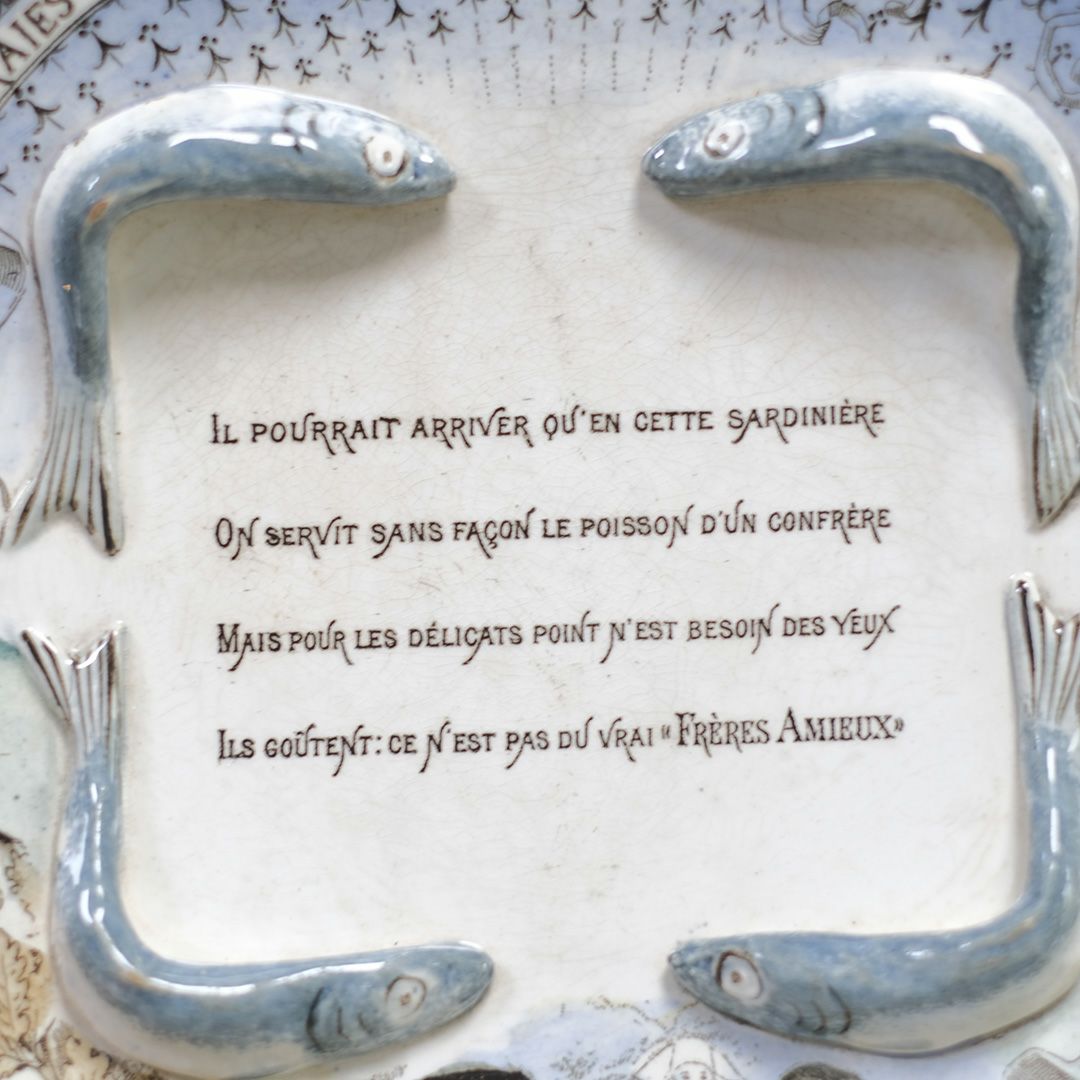 AIES
Il pourrait arriver qu'en cette sardinière
On servit sans façon le poisson d'un confrère
Mais pour les délicats point n'est besoin des yeux
Ils goûtent: ce n'est pas du vrai « Frères Amieux »